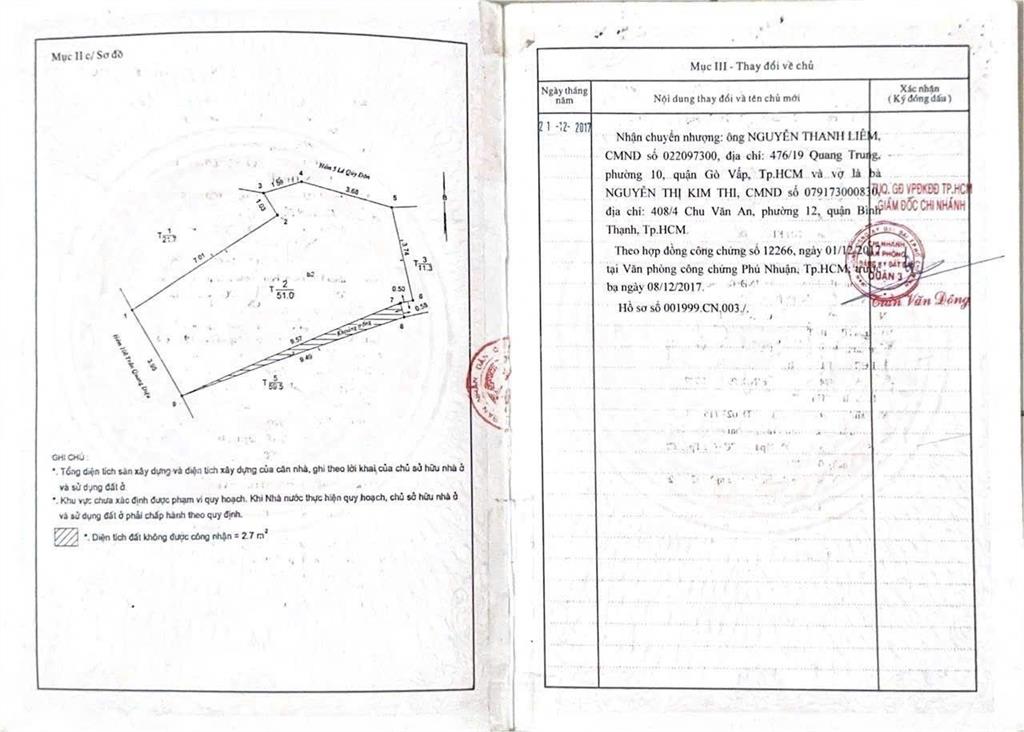 Mục II c/ Sơ đồ
Hẻm 5 Lê Quý Đôn
3
1.59
4
3.68
5
1.03
2
T 1
21.7
7.01
3.74
T 3
11.3
b2
T 2
51.0
0.50
7
6
0.55
8
1
Khoảng trống
9.57
9.49
3.95
Hẻm 168 Trần Quang Diệu
T 5
50.5
9
GHI CHÚ :
*. Tổng diện tích sàn xây dựng và diện tích xây dựng của căn nhà, ghi theo lời khai của chủ sở hữu nhà ở
và sử dụng đất ở.
*. Khu vực chưa xác định được phạm vi quy hoạch. Khi Nhà nước thực hiện quy hoạch, chủ sở hữu nhà ở
và sử dụng đất ở phải chấp hành theo quy định.
*. Diện tích đất không được công nhận = 2.7 m²
Mục III - Thay đổi về chủ
Ngày tháng
năm
Nội dung thay đổi và tên chủ mới
Xác nhận
( Ký đóng dấu )
21 -12- 2017
Nhận chuyển nhượng: ông NGUYỄN THANH LIÊM,
CMND số 022097300, địa chỉ: 476/19 Quang Trung,
phường 10, quận Gò Vấp, Tp.HCM và vợ là bà
NGUYỄN THỊ KIM THI, CMND số 079173000830,
địa chỉ: 408/4 Chu Văn An, phường 12, quận Bình
Thạnh, Tp.HCM.
Theo hợp đồng công chứng số 12266, ngày 01/12/2017
tại Văn phòng công chứng Phú Nhuận, Tp.HCM, trước
bạ ngày 08/12/2017.
Hồ sơ số 001999.CN.003./.
TUQ. GĐ VPĐKĐĐ TP.HCM
GIÁM ĐỐC CHI NHÁNH
CHI NHÁNH
VĂN PHÒNG
ĐĂNG KÝ ĐẤT ĐAI
QUẬN 3
Trần Văn Đông